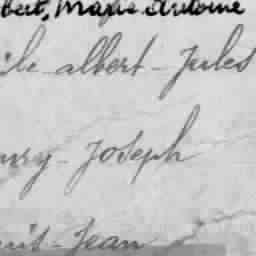 bert, Marie Antoine
ile albert - Jules
nry - Joseph
rit - Jean